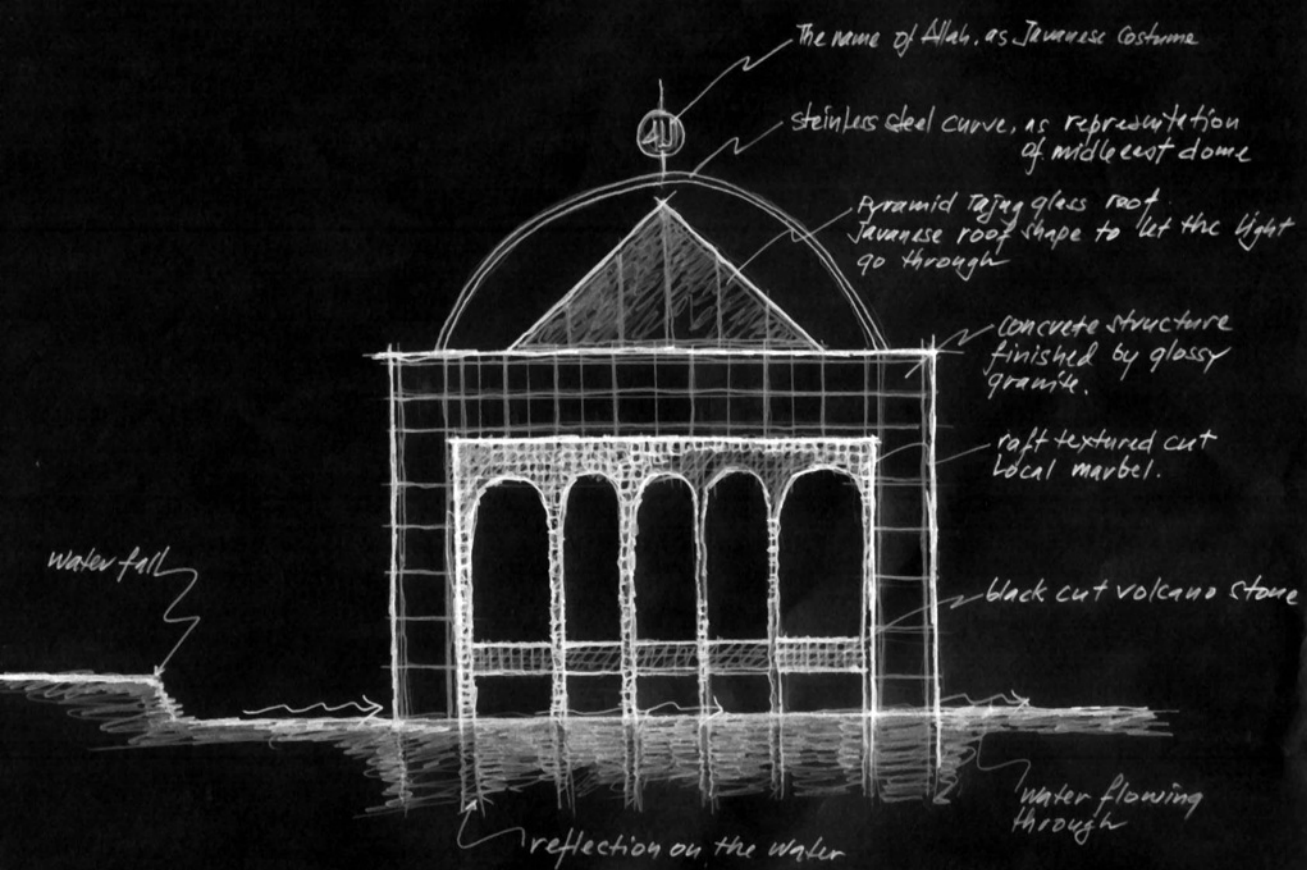 The name of Allah, as Javanese Costume
steinless steel curve, as represntation
of midleeast dome
Pyramid Tajug glass roof.
Javanese roof shape to let the light
go through
Concrete structure
finished by glossy
granite.
raft textured cut
Local marbel.
water fall
black cut volcano stone
water flowing
through
reflection on the water